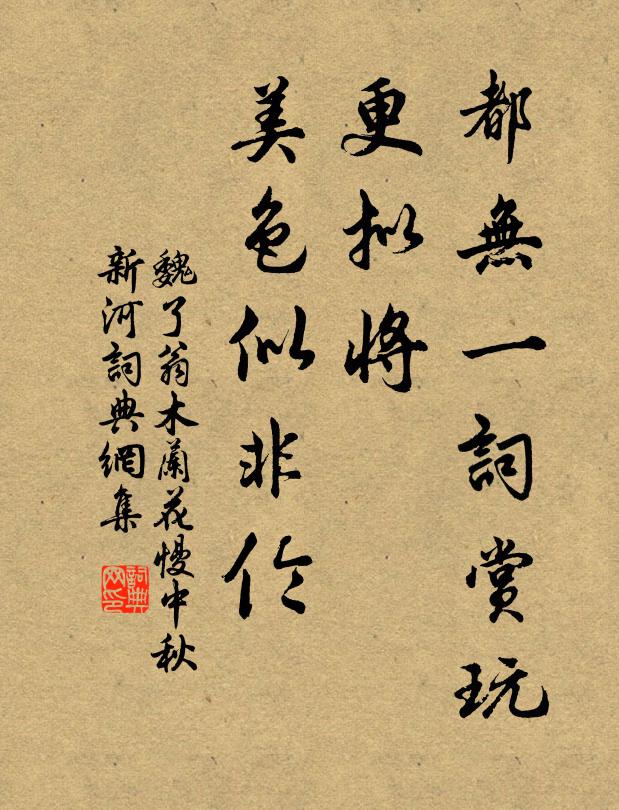 都無一詞賞玩
更拟將
美色似非伦
魏了翁木蘭花慢中秋
新河詞典網集
詞典网印